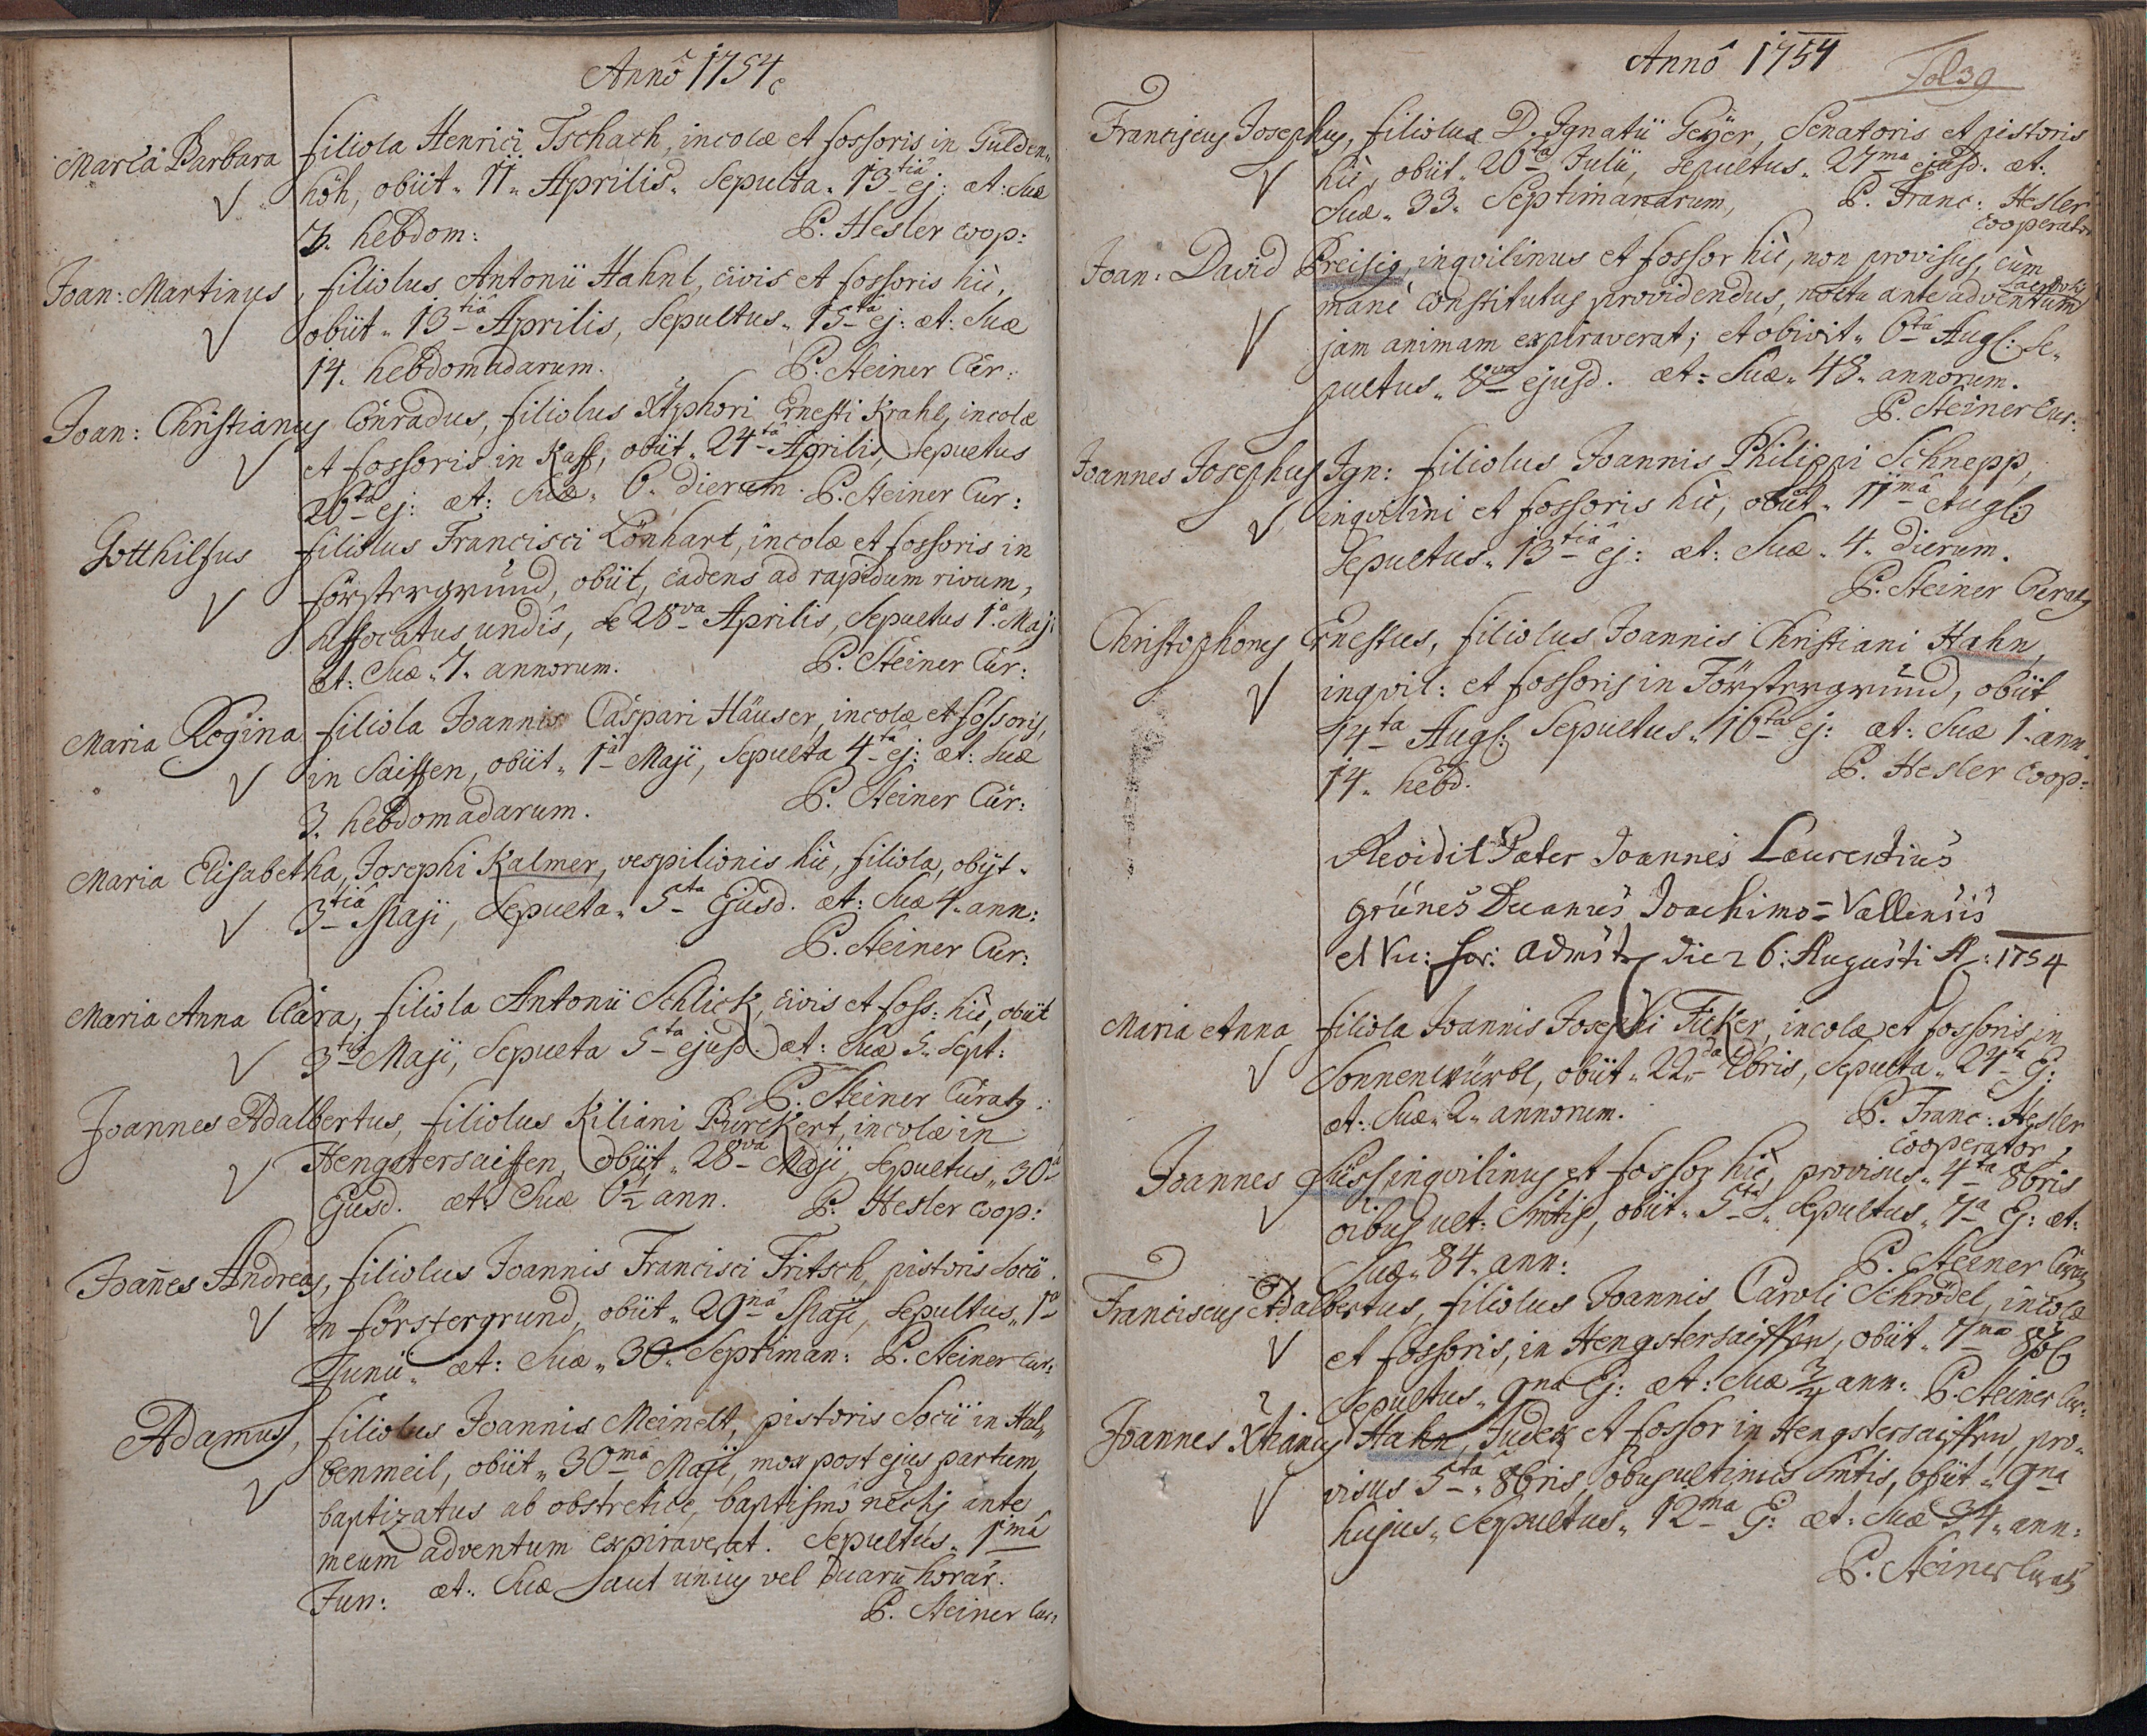 Annô 1754.
Maria Barbara filiola Henrici Tschach, incolæ et fossoris in Gulden„
höh, obiit „ 11 „ Aprilis „ Sepulta „ 13tiâ ej: æt: suæ
7. hebdom: P. Hesler Coop:
Joan: Martinus, filiolus Antonii Hahnl, civis et fossoris hìc,
obiit „ 13tiâ Aprilis, Sepultus „ 15tâ ej: æt: suæ
14. hebdomadarum. P. Steiner Cur:
Joan: Christianus Conradus, filiolus Xtophori Ernesti Krahl, incolæ
et fossoris in Kaff, obiit „ 24tâ Aprilis, Sepultus
26ta ej: æt: suæ „ 6. dierum. P. Steiner Cur:
Gotthilfus filiolus Francisci Lönhart, incolæ et fossoris in
förstergrund, obiit, cadens ad rapidum rivum,
suffocatus undis, 28va Aprilis, Sepultus 1a Maji
æt: suæ „ 7. annorum. P. Steiner Cur:
Maria Regina filiola Joannis Caspari Häuser, incolæ et fossoris,
in Saiffen, obiit „ 1a Maji, Sepulta 4ta ej: æt: suæ
3. hebdomadarum. P. Steiner Cur:
Maria Elisabetha, Josephi Kalmer, vespilionis hìc, filiola, obijt „
3tiâ Maji, Sepulta „ 5ta Ejusd. æt: suæ 4. ann:
P. Steiner Cur:
Maria Anna Clara, filiola Antonii Schlick, civis et foss: hìc, obiit
3tiâ Maji, Sepulta 5ta ejusd. æt: suæ 5. Sept:
P. Steiner Curatg.
Joannes Adalbertus, filiolus Kiliani Burckert, incolæ in
Hengstersaiffen, obiit „ 28va Maji, Sepultus „ 30a
Ejusd. æt: Suæ 6½ ann. P. Hesler Coop:
Joañes Andreas, filiolus Joannis Francisci Fritsch, pistoris Socii
in förstergrund, obiit „ 29nâ Maji, Sepultus „ 1a
Junii „ æt: Suæ „ 30. Septiman: P. Steiner Cur:
Adamus, filiolus Joannis Meinelt, pistoris Socii in Hal„
benmeil, obiit „ 30ma Maji, mox post ejus partum
baptizatus ab obstretice, baptismo ante
meum adventum expiraverat. Sepultus „ 1mâ
Jun: æt: Suæ aut unius vel duarū horar.
P. Steiner Cur:
Annô 1754
Fol 39
Franciscus Josephus, filiolus D. Ignatii Geÿer, Senatoris et pistoris
hìc, obiit „ 26ta Julii, Sepultus „ 27ma ejusd. æt:
Suæ „ 33. Septimanarum, P. Franc: Hesler
Cooperator
Joan: David Preisig, inqvilinus et fossor hìc, non provisus, cùm
manè constitutus providendus, noctu ante adventum Sacerdotis
jam animam expiraverat; et obivit „ 6ta Aug: Se„
pultus „ 8va ejusd. æt: Suæ „ 48. annorum.
P. Steiner Cur:
Joannes Josephus Ign: filiolus Joannis Philippi Schnepp,
inqvilini et fossoris hìc, obiit „ 11mâ Augl:
Sepultus „ 13tiâ ej: æt: Suæ „ 4. dierum.
P. Steiner Curatg
Christophorus Ernestus, filiolus Joannis Christiani Hahn,
inqvil: et fossoris in Förstergrund, obiit
14ta Aug: Sepultus „ 16ta ej: æt: Suæ 1. ann.
14. hebd. P. Hesler Coop:
Revidit Pater Joannes Laurentius
grünes Decanus Joachimo=Vallensis
et Vic: for: die 26: Augusti A: 1754
Maria Anna filiola Joannis Josephi Ficker, incolæ et fossoris in
Sonnenwürbl, obiit „ 22da 7bris, Sepulta „ 24ta Ej:
æt: Suæ „ 2. annorum. P. Franc: Hesler
Cooperator
Joannes Süss, inqvilinus et fossor hìc, provisus „ 4ta 8bris
oibus ult: Smtis, obiit „ 5ta „ Sepultus „ 7a Ej: æt:
Suæ „ 84. ann: P. Steiner Curatg
Franciscus Adalbertus, filiolus Joannis Caroli Schrödel, incolæ
et fossoris, in Hengstersaiffen, obiit „ 7ma 8br
Sepultus „ 9na Ej: æt: Suæ ¾ ann: P. Steiner Cur:
Joannes Xtianus Hahn, Judex et fossor in Hengstersaiffen, pro„
visus 5ta „ 8bris, oibus ultimis Smtis, obiit „ 9na
hujus „ Sepultus „ 12ma Ej: æt: Suæ 34 „ ann:
P. Steiner Curatg